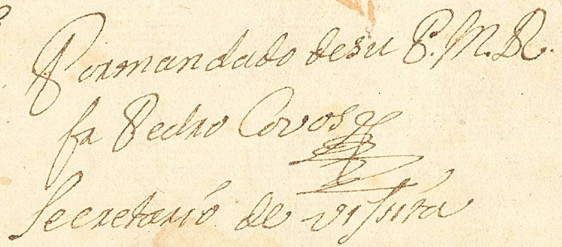 Pormandado desu P. M. R.
fr Pedro Covos
Secretario de visita